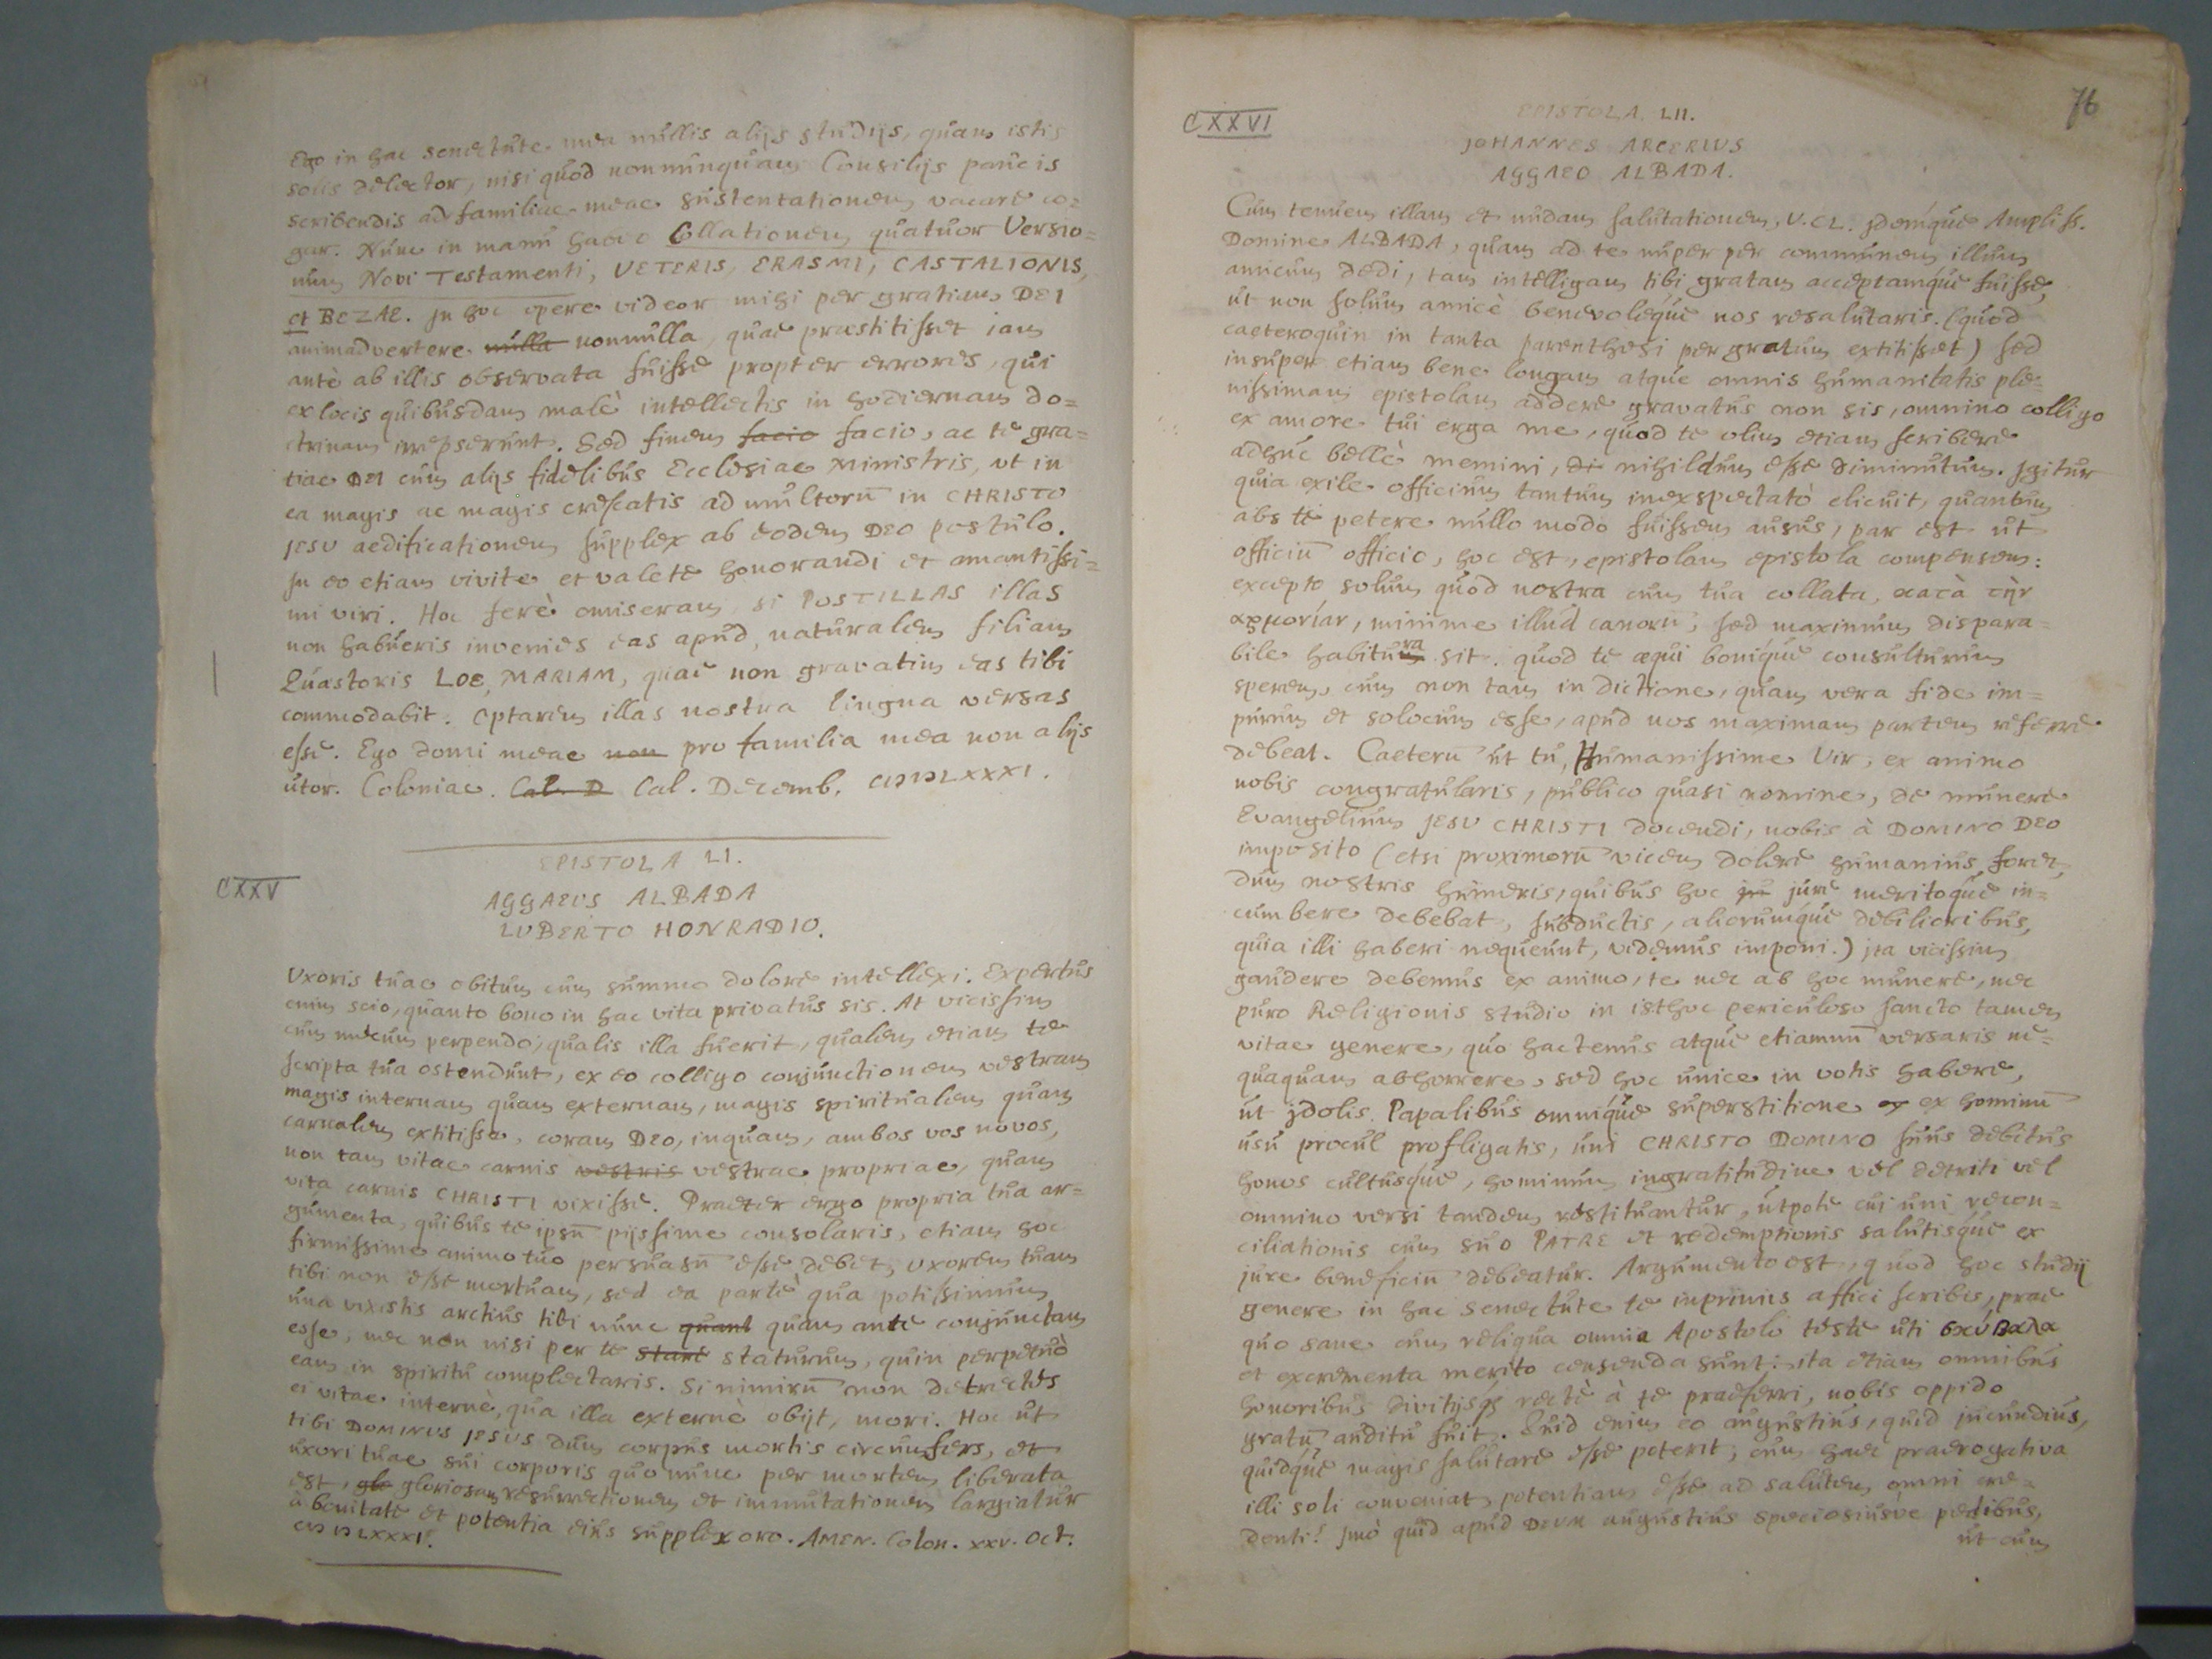 Ego in hac senectute mea nullis alijs studijs, quam istis
solis delector, nisi quod nonnunquam Consilijs paucis
scribendis ad familiae meae sustentationem vacare co=
gar. Nunc in manu habeo Collationem quatuor Versio=
num Novi Testamenti, VETERIS, ERASMI, CASTALIONIS,
et BEZAE. In hoc opere videor mihi per gratiam DEI
animadvertere nulla nonnulla, quae praestitisset iam
antè ab illis observata fuisse propter errores, qui
ex locis quibusdam malè intellectis in hodiernam do=
ctrinam irrepserunt. Sed finem facio facio, ac te gra=
tiae DEI cum alijs fidelibus Ecclesiae Ministris, ut in
ea magis ac magis crescatis ad multorũ in CHRISTO
JESU aedificationem supplex ab eodem DEO postulo.
In eo etiam vivite et valete honorandi et amantissi=
mi viri. Hoc ferè omiseram, si POSTILLAS illas
non habueris invenies eas apud naturalem filiam
Quaestoris LOE, MARIAM, quae non gravatim eas tibi
commodabit. Optarem illas nostra lingua versas
esse. Ego domi meae non pro familia mea non alijs
utor. Coloniae. Cal. D Cal. Decemb. CIƆIƆLXXXI.
CXXV
EPISTOLA LI.
AGGAEUS ALBADA
LUBERTO HONRADIO.
Uxoris tuae obitum cum summo dolore intellexi. Expertus
enim scio, quanto bono in hac vita privatus sis. At vicissim
cum mecum perpendo, qualis illa fuerit, qualem etiam te
scripta tua ostendunt, ex eo colligo conjunctionem vestram
magis internam quam externam, magis spiritualem quam
carnalem extitisse, coram DEO, inquam, ambos vos novos,
non tam vitae carnis vestris vestrae propriae, quam
vita carnis CHRISTI vixisse. Praeter ergo propria tua ar=
gumenta, quibus te ipsũ pijssime consolaris, etiam hoc
firmissime animo tuo persuasũ esse debet, uxorem tuam
tibi non esse mortuam, sed ea parte qua potissimum
una vixistis arctius tibi nunc quant quam ante conjunctam
esse, nec non nisi per te stare staturum, quin perpetuò
eam in spiritu complectaris. Si nimirũ non detrectes
ei vitae internè, qua illa externè obijt, mori. Hoc ut
tibi DOMINUS JESUS dum corpus mortis circumfers, et
uxori tuae sui corporis quo nunc per mortem liberata
est, glo gloriosam resurrectionem et immutationem largiatur
à bonitate et potentia eius supplex oro. AMEN. Colon. XXV. Oct.
CIƆ IƆ LXXXI.
76
CXXVI
EPISTOLA LII.
JOHANNES ARCERIUS
AGGAEO ALBADA.
Cum tenuem illam et nudam salutationem, V. CL. Idemque Ampliss.
Domine ALBADA, quam ad te nuper per communem illum
amicum dedi, tam intelligam tibi gratam acceptamque fuisse,
ut non solum amicè benevoleque nos resalutaris (quod
caeteroquin in tanta parenthesi pergratum extitisset) sed
insuper etiam bene longam atque omnis humanitatis ple=
nissimam epistolam addere gravatus non sis, omnino colligo
ex amore tui erga me, quod te olim etiam scribere
adhuc bellè memini, de nihildum esse diminutum. Igitur
quia exile officium tantum inexspectatò elicuit, quantum
abs te petere nullo modo fuissem ausus, par est ut
officiũ officio, hoc est, epistolam epistola compensem:
excepto solum quod nostra cum tua collata, κατὰ τὴν
ἁρμονίαν, minime illud canorũ, sed maximum dispara=
bile habitura sit. quod te aequi bonique consulturum
sperem, cum non tam in dictione, quam vera fide im=
purum et soloecum esse, apud nos maximam partem referre
debeat. Caeterũ ut tu, Humanissime Vir, ex animo
nobis congratularis, publico quasi nomine, de munere
Evangelium JESU CHRISTI docendi, nobis à DOMINO DEO
imposito (etsi proximorũ vicem dolere humanius foret,
dum nostris humeris, quibus hoc ju jure meritoque in=
cumbere debebat, subductis, aliorumque debilioribus,
quia illi haberi nequeunt, videmus imponi.) ita vicissim
gaudere debemus ex animo, te nec ab hoc munere, nec
puro Religionis studio in isthoc periculoso sancto tamen
vitae genere, quo hactenus atque etiamnũ versaris ne=
quaquam abhorrere, sed hoc unice in votis habere,
ut Idolis Papalibus omnique superstitione ex ex hominũ
usu procul profligatis, uni CHRISTO DOMINO suus debitus
honos cultusque, hominum ingratitudine vel detriti vel
omnino versi tandem restituantur, utpote cui uni recon=
ciliationis cum suo PATRE et redemptionis salutisque ex
jure beneficiũ debeatur. Argumento est, quod hoc studij
genere in hac senectute te inprimis affici scribis, prae
quo sane cum reliqua omnia Apostolo teste uti σκύβαλα
et excrementa merito censenda sunt: ita etiam omnibus
honoribus divitijsq; rectè à te praeferri, nobis oppido
gratũ auditu fuit. Quid enim eo augustius, quid jucundius,
quidque magis salutare esse poterit, cum haec praerogativa
illi soli conveniat, potentiam esse ad salutem omni cre=
denti! Imò quid apud DEUM augustius speciosiusve pedibus,
ut cum